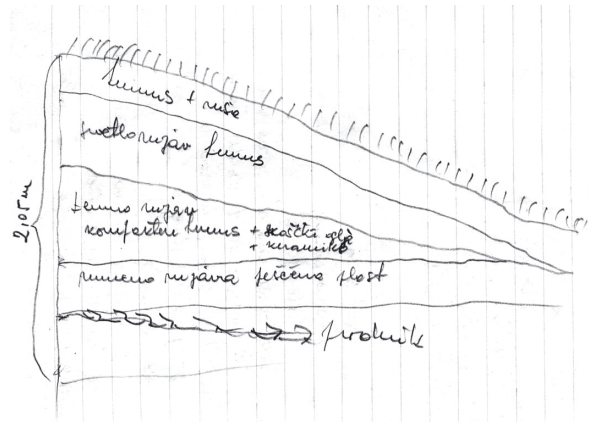 humus + ruša
svetlorujav humus
temno rujav
kompakten humus + koščki oglja
+ keramika
rumeno rujava peščena plast
prodnik
2,05 m